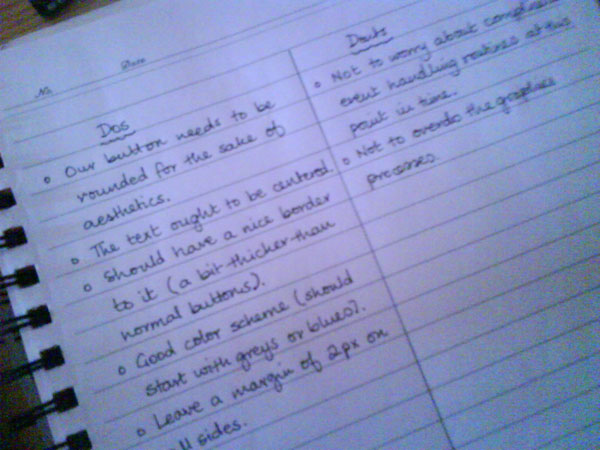 No.
Date
Dos
• Our button needs to be
rounded for the sake of
aesthetics.
• The text ought to be centered.
• Should have a nice border
to it (a bit thicker than
normal buttons).
• Good color scheme (should
start with greys or blues).
• Leave a margin of 2px on
all sides.
Donts
• Not to worry about complicated
event handling routines at this
point in time.
• Not to overdo the graphics
processes.